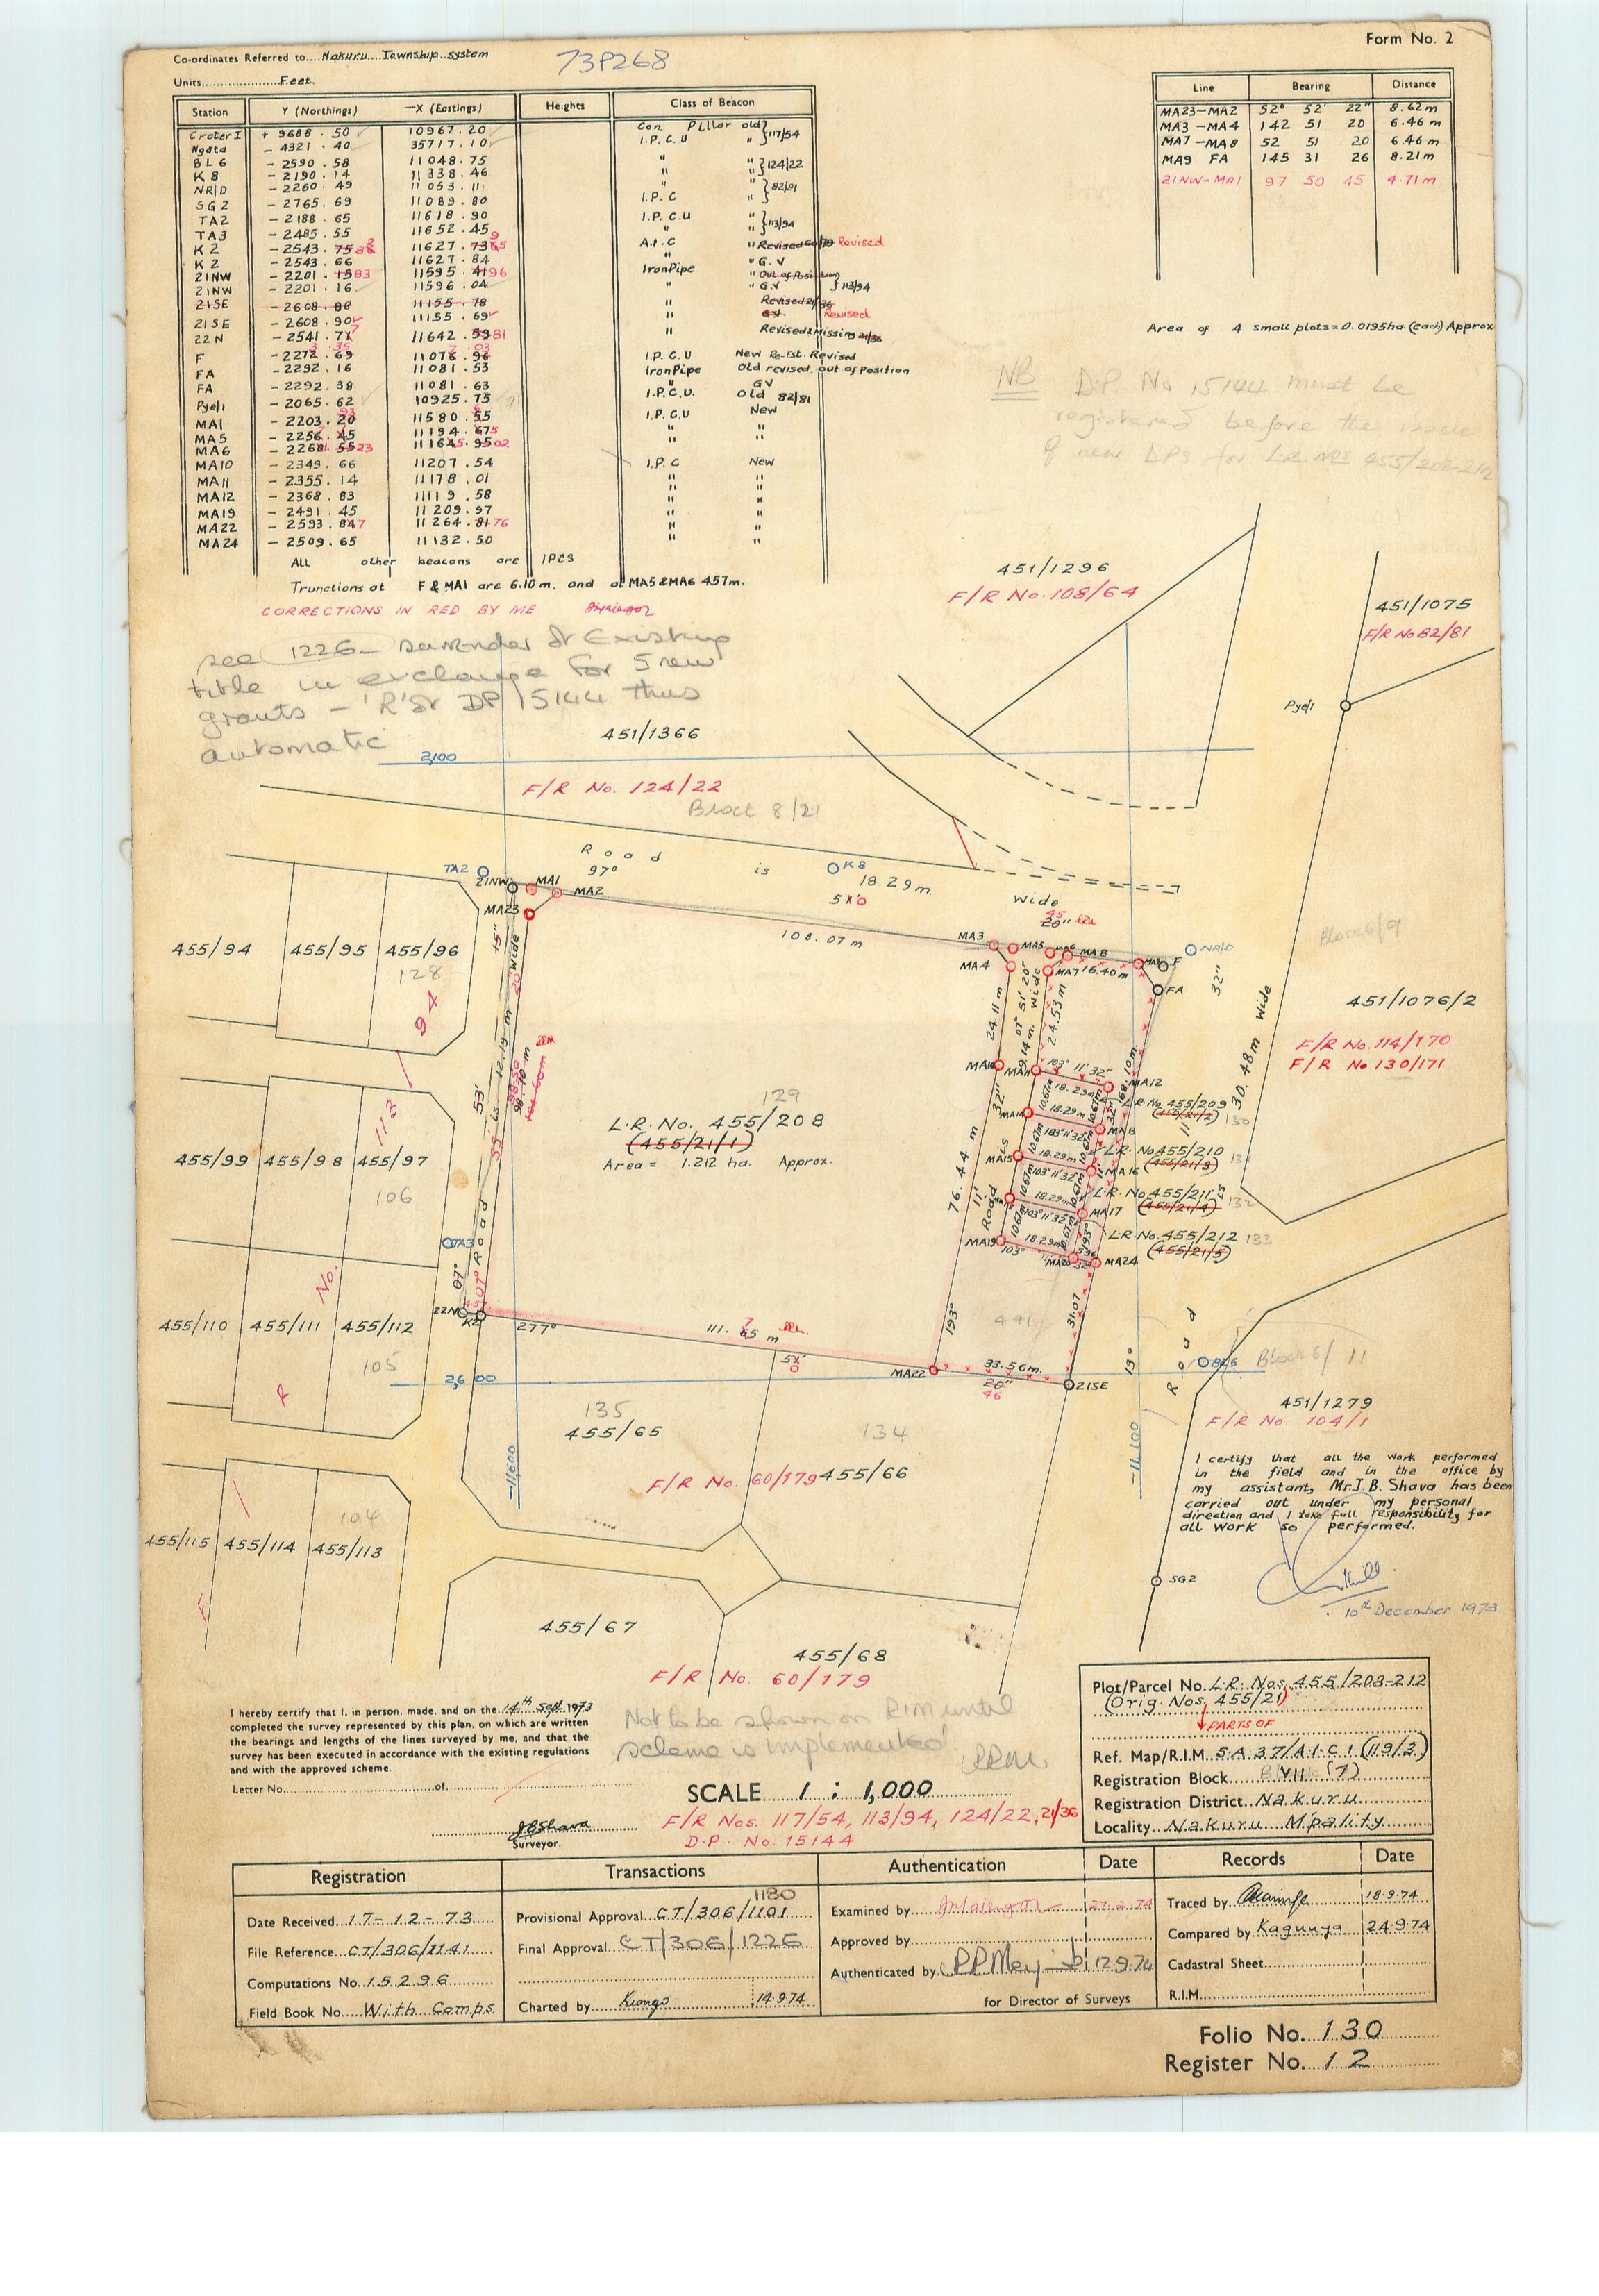 Form No. 2
Co-ordinates Referred to....Nakuru....Township..system
73P268
Units....................Feet.
Station Y (Northings) —X (Eastings) Heights Class of Beacon
Crater I + 9688 . 50 10967 . 20 Con. Pillar old } 117/54
Ngata - 4321 . 40 35717 . 10 I.P.C.U "
BL6 - 2590 . 58 11048 . 75 " " } 124/22
K8 - 2190 . 14 11338 . 46 " "
NR/D - 2260 . 49 11053 . 11 " " } 82/81
SG2 - 2765 . 69 11089 . 80 I.P.C "
TA2 - 2188 . 65 11618 . 90 I.P.C.U " } 113/94
TA3 - 2485 . 55 11652 . 45 " "
K2 - 2543 . 75 11627 . 73 A.I.C " Revised Revised
K2 - 2543 . 66 11627 . 84 " " G.V
21NW - 2201 . 15 83 11595 . 41 96 Iron Pipe " Out of Position
21NW - 2201 . 16 11596 . 04 " " G.V } 113/94
21SE - 2608 . 88 11155 . 78 " Revised 21/36
21SE - 2608 . 90 11155 . 69 " G.V. Revised
22N - 2541 . 71 11642 . 59 81 " Revised & Missing 21/36
F - 2272 . 69 11076 . 96 I.P.C.U New Re-Est. Revised
FA - 2292 . 16 11081 . 53 Iron Pipe Old revised, out of Position
FA - 2292 . 38 11081 . 63 " GV
Pye/1 - 2065 . 62 10925 . 75 I.P.C.U. Old 82/81
MA1 - 2203 . 20 11580 . 55 I.P.C.U New
MA5 - 2256 . 45 11194 . 67 " "
MA6 - 2260 . 55 23 11164 . 95 02 " "
MA10 - 2349 . 66 11207 . 54 I.P.C New
MA11 - 2355 . 14 11178 . 01 " "
MA12 - 2368 . 83 11119 . 58 " "
MA19 - 2491 . 45 11209 . 97 " "
MA22 - 2593 . 84 7 11264 . 81 76 " "
MA24 - 2509 . 65 11132 . 50 " "
All other beacons are IPCS
Trunctions at F & MA1 are 6.10 m. and at MA5 & MA6 4.57m.
CORRECTIONS IN RED BY ME
Line Bearing Distance
MA23-MA2 52° 52' 22" 8.62 m
MA3 -MA4 142 51 20 6.46 m
MA7 -MA8 52 51 20 6.46 m
MA9 FA 145 31 26 8.21 m
21NW-MA1 97 50 45 4.71 m
Area of 4 small plots = 0.0195ha (each) Approx
NB D.P. No 15144 must be
registered before the issue
of new DPs for L.R. Nos 455/208-212
see 1226 - surrender of Existing
title in exchange for 5 new
grants - 'R' of DP 15144 thus
automatic
451/1296
F/R No. 108/64
451/1075
F/R No 82/81
Pye/1
451/1366
2,100
F/R No. 124/22
Block 8/21
Road 97° is K8 18.29 m. Wide
5x'0 45 20"
TA2 21NW MA1 MA2
MA23
108.07 m
MA3 MA5 MA6 MA8 MA9 F NR/D
MA4 MA7 16.40m FA
Block 6/9
455/94 455/95 455/96
128
94
451/1076/2
F/R No. 114/170
F/R No 130/171
30. 48 m Wide
32"
24.11 m
01° 51' 20"
9.14 m. Wide
24.53 m
68.10m
12.19 m
98.70 m
MA10 MA11 103° 11' 32" MA12
18.29m
L.R. No. 455/209
(455/21/2) 130
MA14 18.29m MA13
103° 11' 32"
L.R. No 455/210
(455/21/3)
MA15 18.29m MA16
103° 11' 32"
L.R. No. 455/211
(455/21/4) 132
18.29m MA17
103° 11' 32"
L.R. No. 455/212 133
(455/21/5)
MA19 18.29m MA20 MA24
103°
10.67m
129
L.R. No. 455/208
(455/21/1)
Area = 1.212 ha. Approx.
76. 44 m
Road is
113
455/99 455/98 455/97
106
TA3
No.
455/110 455/111 455/112
105
R
22N K2
277°
111. 65 m
5x'
193°
31.07
491
13°
Road
MA22 33.56m. 21SE
20"
46
BL6
Block 6/ 11
2,600
135
455/65
134
455/66
F/R No. 60/179
-11,600
-11,100
451/1279
F/R No. 104/1
I certify that all the work performed
in the field and in the office by
my assistant, Mr J.B. Shava has been
carried out under my personal
direction and I take full responsibility for
all work so performed.
10th December 1973
SG2
104
455/115 455/114 455/113
F
455/67
455/68
F/R No. 60/179
I hereby certify that I, in person, made, and on the 14th Sept 1973
completed the survey represented by this plan, on which are written
the bearings and lengths of the lines surveyed by me, and that the
survey has been executed in accordance with the existing regulations
and with the approved scheme.
Letter No..............................of
Not to be shown on RIM until
scheme is implemented
JBShava
Surveyor.
SCALE 1 : 1,000
F/R Nos. 117/54, 113/94, 124/22, 21/36
D.P. No. 15144
Plot/Parcel No. L.R. Nos. 455/208-212
(Orig. Nos. 455/21)
PARTS OF
Ref. Map/R.I.M. SA.37/A.I.C.1 (119/3)
Registration Block VII (7)
Registration District Nakuru
Locality Nakuru M'pality
Registration Transactions Authentication Date Records Date
Date Received 17-12-73
File Reference CT/306/1141
Computations No. 15296
Field Book No. With Comps.
1180
Provisional Approval CT/306/1101
Final Approval CT/306/1226
Charted by Kiongo 14.9.74
Examined by 27.2.74
Approved by
Authenticated by 12.9.74
for Director of Surveys
Traced by 18.9.74
Compared by Kagunya 24.9.74
Cadastral Sheet
R.I.M.
Folio No. 130
Register No. 12